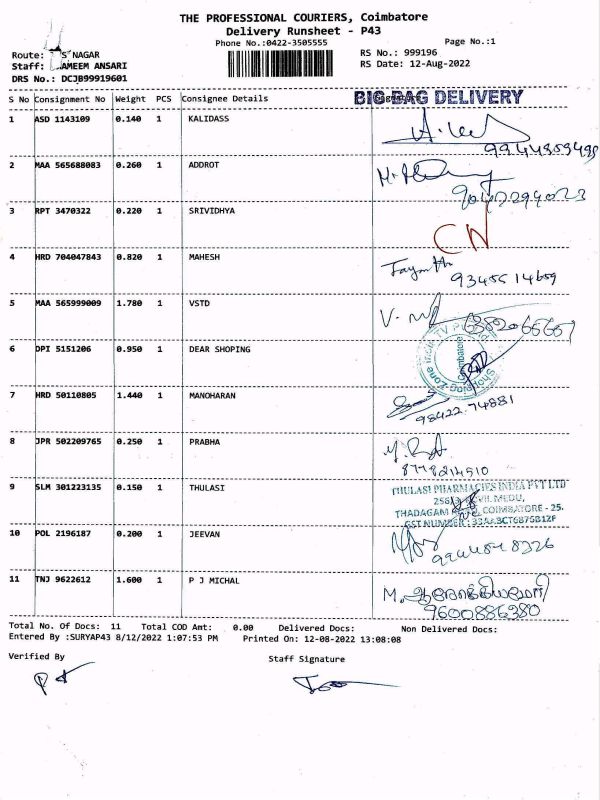 THE PROFESSIONAL COURIERS, Coimbatore
Delivery Runsheet - P43
Phone No.:0422-3505555
Page No.:1
Route: S NAGAR
RS No.: 999196
Staff: AMEEM ANSARI
RS Date: 12-Aug-2022
DRS No.: DCJB99919601
S No Consignment No Weight PCS Consignee Details BIG BAG DELIVERY
1 ASD 1143109 0.140 1 KALIDASS
2 MAA 565688083 0.260 1 ADDROT
3 RPT 3470322 0.220 1 SRIVIDHYA CN
4 HRD 704047843 0.820 1 MAHESH
9345514659
5 MAA 565999009 1.780 1 VSTD
6 DPI 5151206 0.950 1 DEAR SHOPING
Coimbatore
7 HRD 50110805 1.440 1 MANOHARAN
98422.74881
8 JPR 502209765 0.250 1 PRABHA
9 SLM 301223135 0.150 1 THULASI THULASI PHARMACIES INDIA PVT LTD
THADAGAM COIMBATORE - 25.
GST NUMBER : 33AABCT6875B1ZF
10 POL 2196187 0.200 1 JEEVAN
11 TNJ 9622612 1.600 1 P J MICHAL M.
9600886380
Total No. Of Docs: 11 Total COD Amt: 0.00 Delivered Docs: Non Delivered Docs:
Entered By :SURYAP43 8/12/2022 1:07:53 PM Printed On: 12-08-2022 13:08:08
Verified By Staff Signature